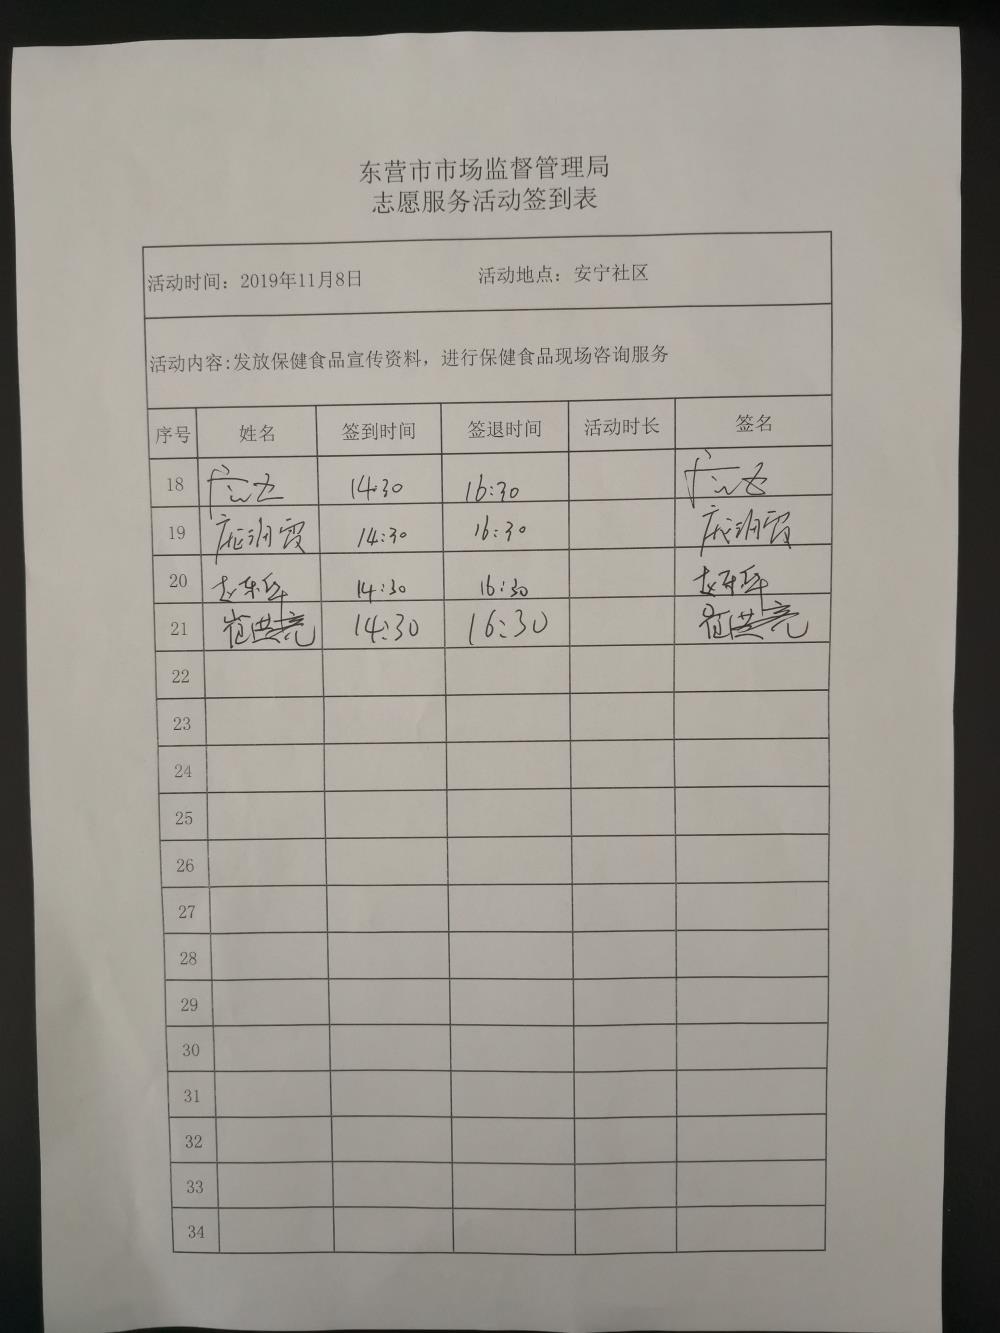 东营市市场监督管理局
志愿服务活动签到表
活动时间：2019年11月8日 活动地点：安宁社区
活动内容:发放保健食品宣传资料，进行保健食品现场咨询服务
序号 姓名 签到时间 签退时间 活动时长 签名
18 14:30 16:30
19 14:30 16:30
20 14:30 16:30
21 崔洪亮 14:30 16:30 崔洪亮
22
23
24
25
26
27
28
29
30
31
32
33
34